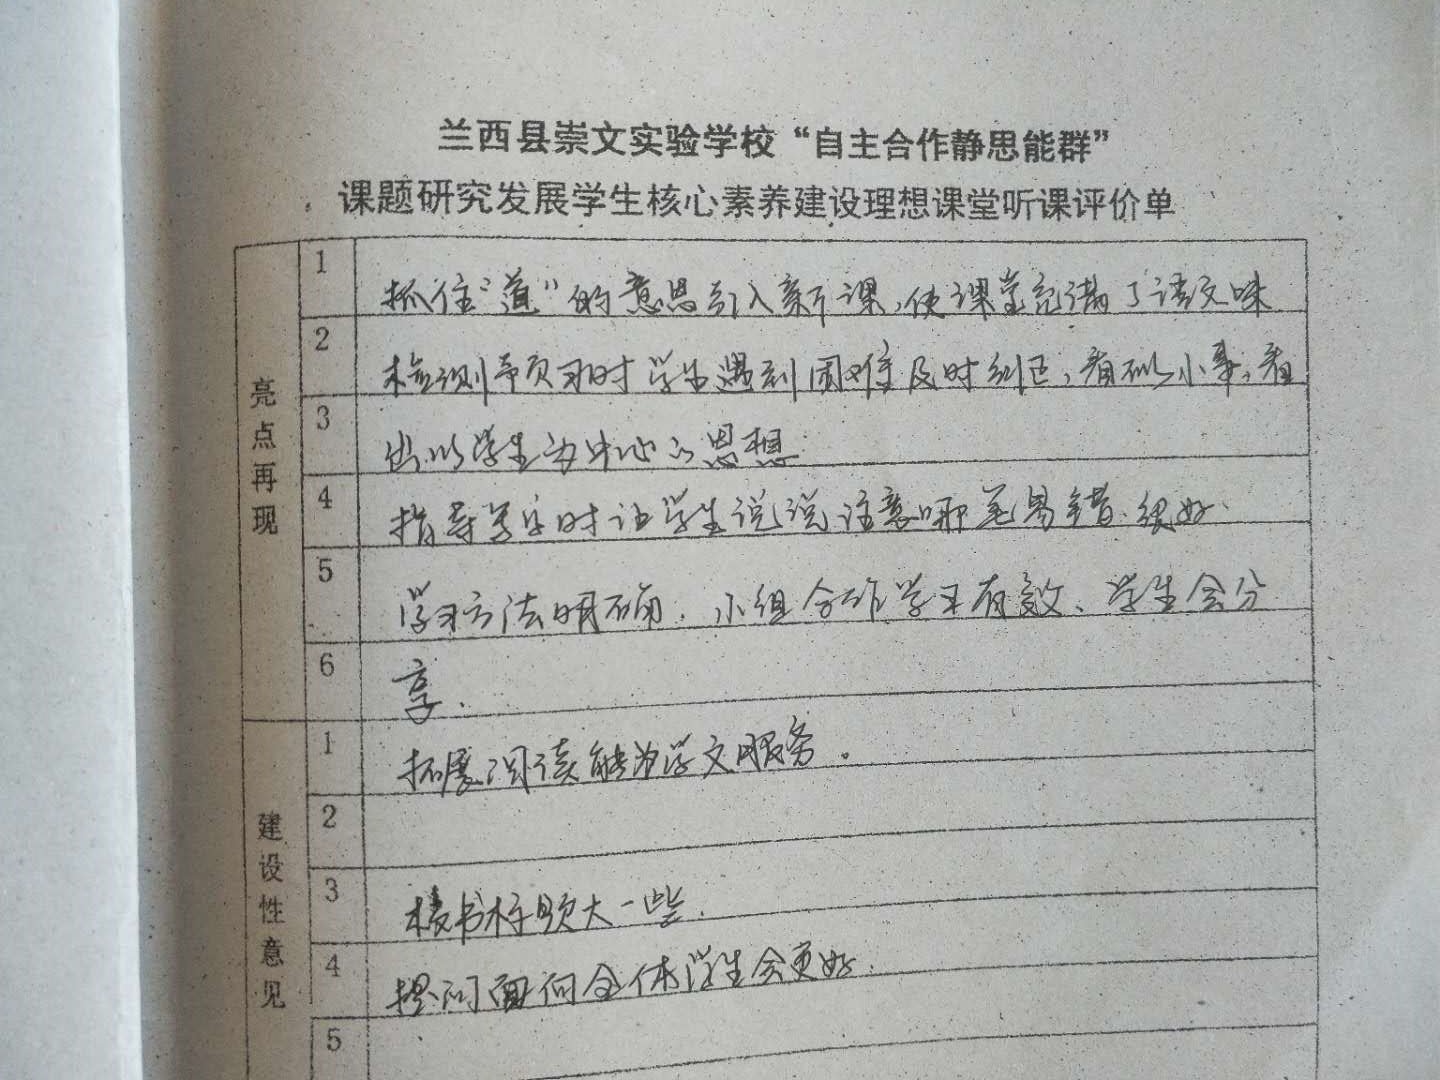 兰西县崇文实验学校“自主合作静思能群”
课题研究发展学生核心素养建设理想课堂听课评价单
亮点再现
1 抓住“道”的意思引入新课,使课堂充满了语文味
2 检测预习时学生遇到困难及时纠正,看似小事,看
3 出以学生为中心的思想
4 指导写字时让学生说说注意哪笔易错.很好.
5 学习方法明确.小组合作学习有效、学生会分
6 享.
建设性意见
1 拓展阅读能为学文服务。
2
3 板书标题大一些.
4 提问面向全体学生会更好.
5